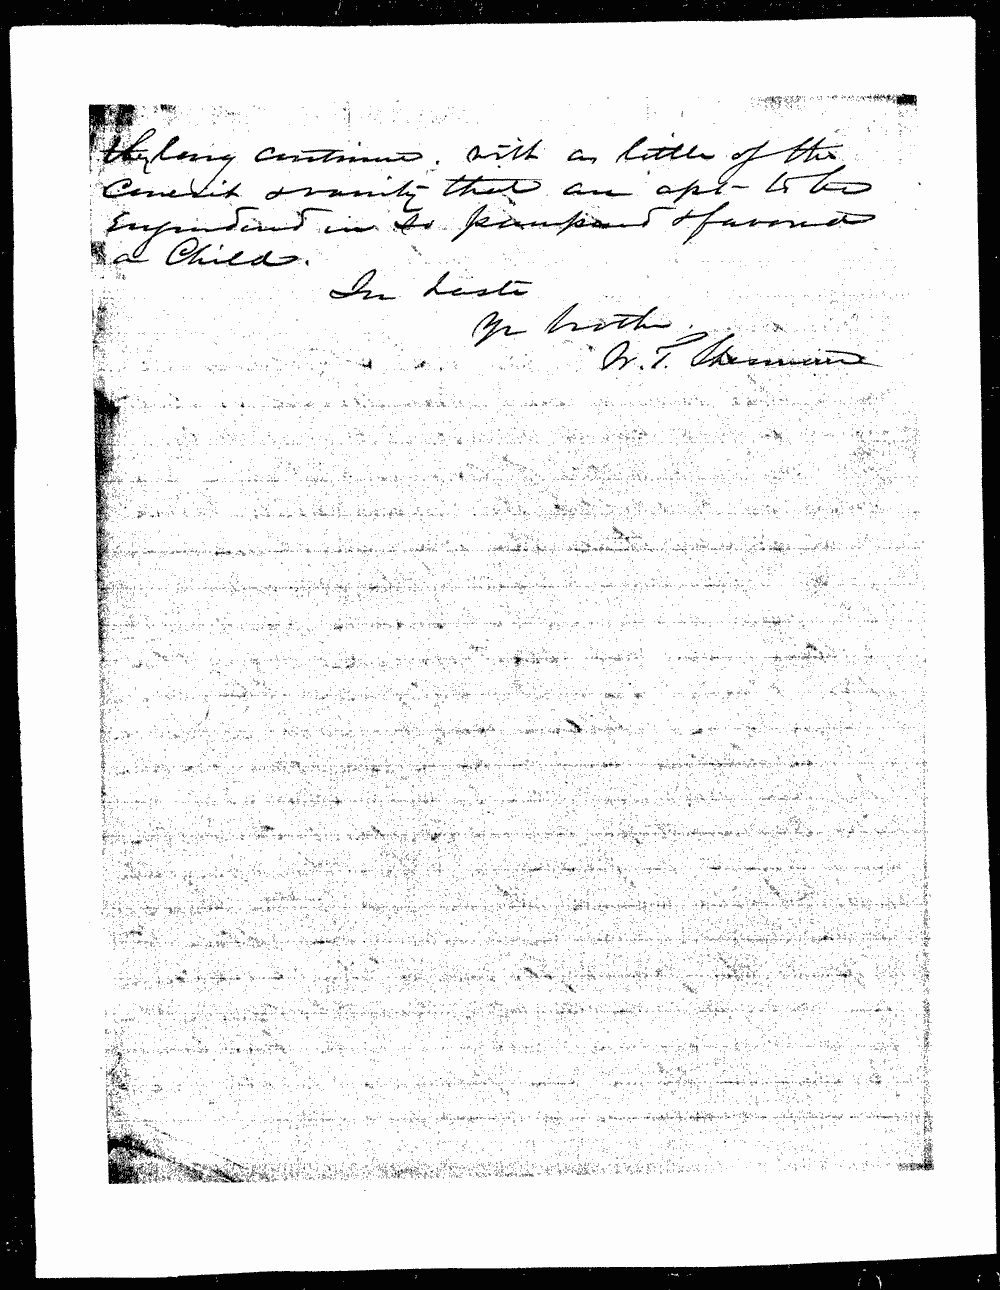 they long continue. with as little of the
Conceit & vanity that are apt to be
Engendered in so pampered & favored
a Child.
In haste
Yr brother.
W. T. Sherman